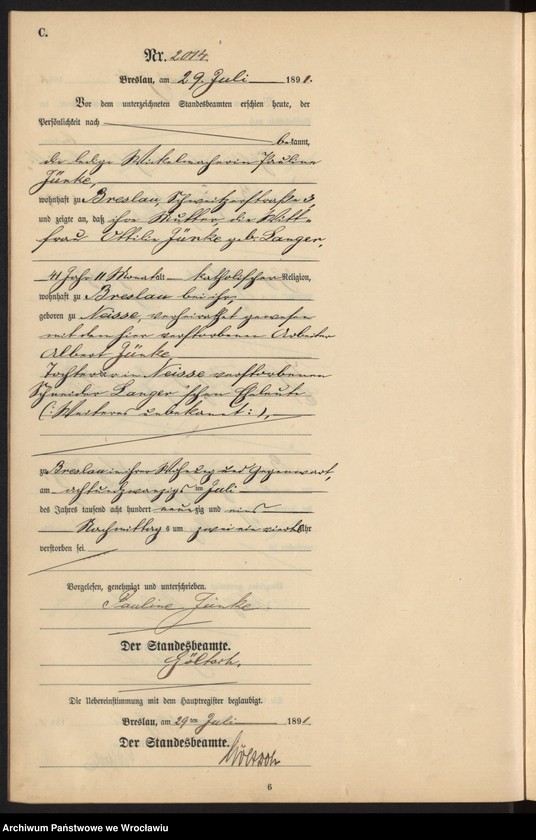 C.
Nr. 2014.
Breslau, am 29. Juli 1891.
Vor dem unterzeichneten Standesbeamten erschien heute, der
Persönlichkeit nach
bekannt,
die ledige Wickelmacherin Pauline
Jünke,
wohnhaft zu Breslau, Schweitzerstraße 3,
und zeigte an, daß ihre Mutter, die Witt-
frau Ottilie Jünke geb. Langer
41 Jahr 11 Monat alt katholischer Religion,
wohnhaft zu Breslau bei ihr,
geboren zu Neisse, verheirathet gewesen
mit dem hier verstorbenen Arbeiter
Albert Jünke,
Tochter der in Neisse verstorbenen
Schneider Langer'schen Eheleute
(: Weiteres unbekannt :),
zu Breslau in ihrer Wohnung und Gegenwart,
am achtundzwanzigsten Juli
des Jahres tausend acht hundert neunzig und eins
Nachmittags um zwei ein viertel Uhr
verstorben sei.
Vorgelesen, genehmigt und unterschrieben.
Pauline Jünke
Der Standesbeamte.
Göltsch.
Die Uebereinstimmung mit dem Hauptregister beglaubigt.
Breslau, am 29ten Juli 1891.
Der Standesbeamte.
Göltsch
6
Archiwum Państwowe we Wrocławiu